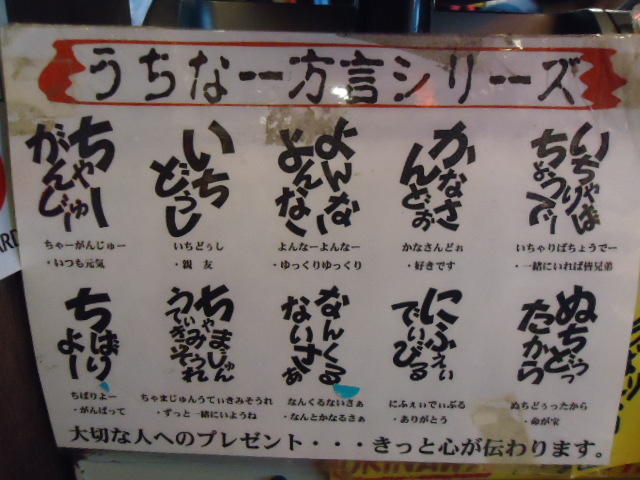 うちなー方言シリーズ
いちゃりば
ちょうでー
いちゃりばちょうでー
・一緒にいれば皆兄弟
かなさ
んどぉ
かなさんどぉ
・好きです
よんなー
よんなー
よんなーよんなー
・ゆっくりゆっくり
いち
どぅし
いちどぅし
・親 友
ちゃー
がんじゅー
ちゃーがんじゅー
・いつも元気
ぬちどぅっ
たから
ぬちどぅったから
・命が宝
にふぇぃ
でぃびる
にふぇぃでぃぶる
・ありがとう
なんくる
ないさぁ
なんくるないさぁ
・なんとかなるさぁ
ちゃまじゅん
うてぃきみそうれ
ちゃまじゅんうてぃきみそうれ
・ずっと一緒にいようね
ちばり
よー
ちばりよー
・がんばって
大切な人へのプレゼント・・・きっと心が伝わります。